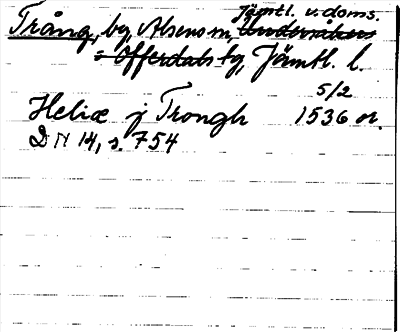 Jämtl. v. doms.
Trång, by, Alsens sn, Undersåkers
= Offerdals tg, Jämtl. l.
5/2
Heliæ j Trongh 1536 or.
DN 14, s. 754